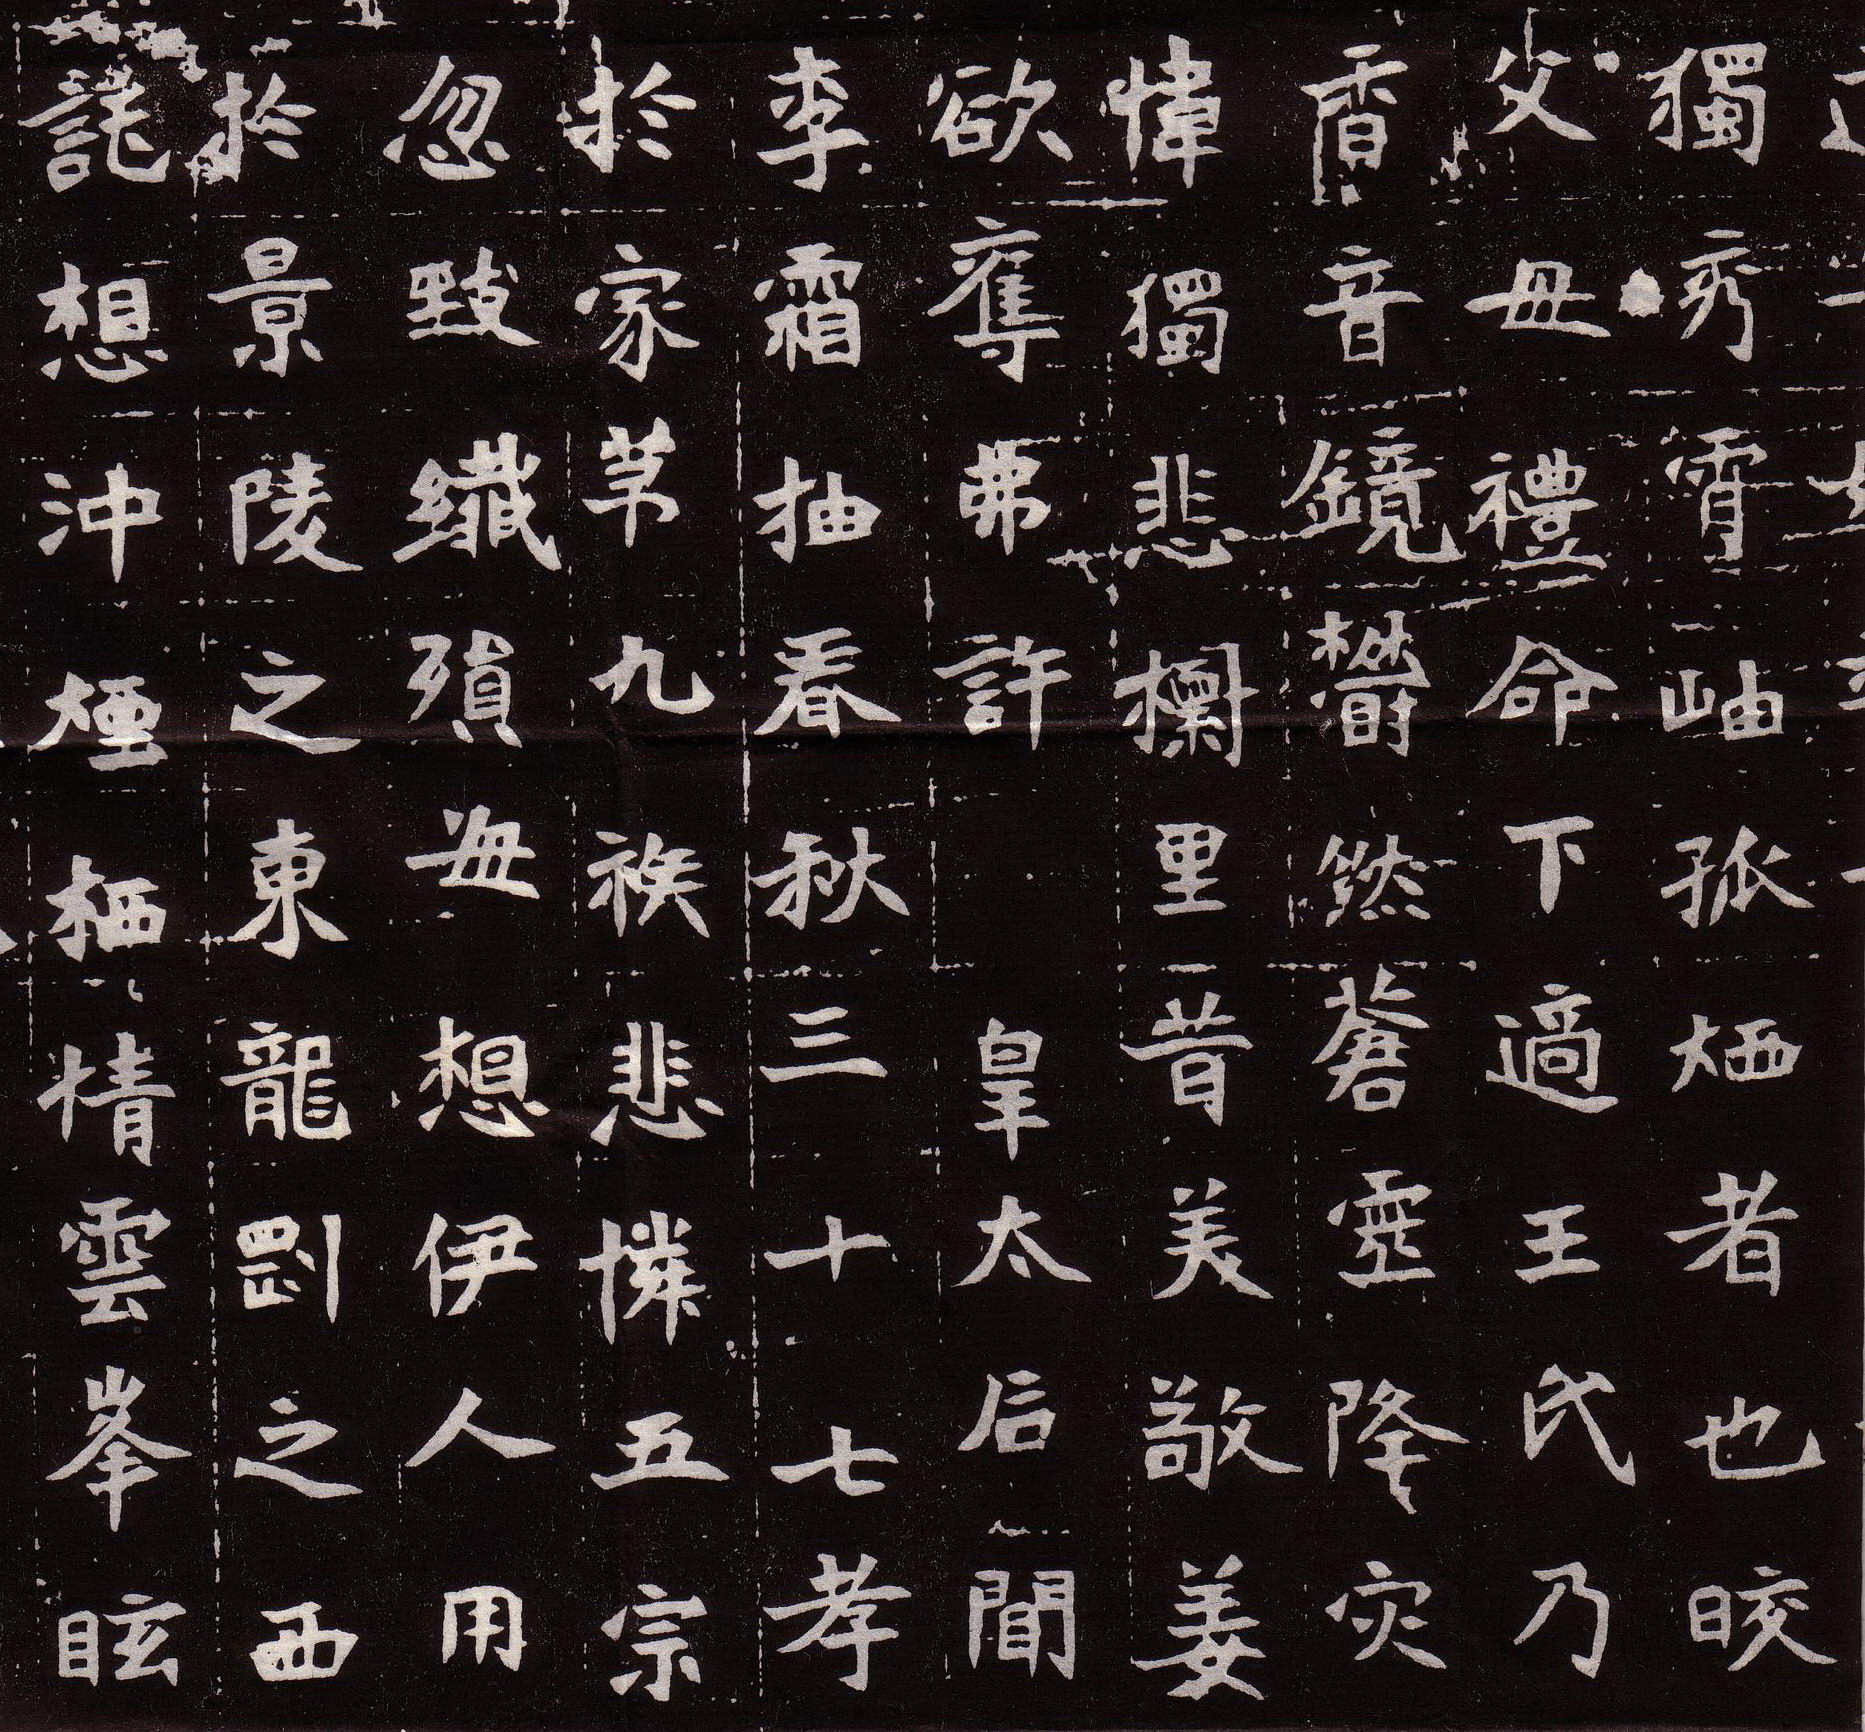 獨秀霄岫孤栖者也晈
父毋禮命下適王氏乃
香音鏡欝然蒼霊降灾
愇獨悲欄里昔美敬姜
欲奪弗許皇太后聞
李霜抽春秋三十七孝
於家苐九族悲憐五宗
忽翄纎殞毋想伊人用
於景陵之東龍罡之西
託想沖煙栖情雲峯眩